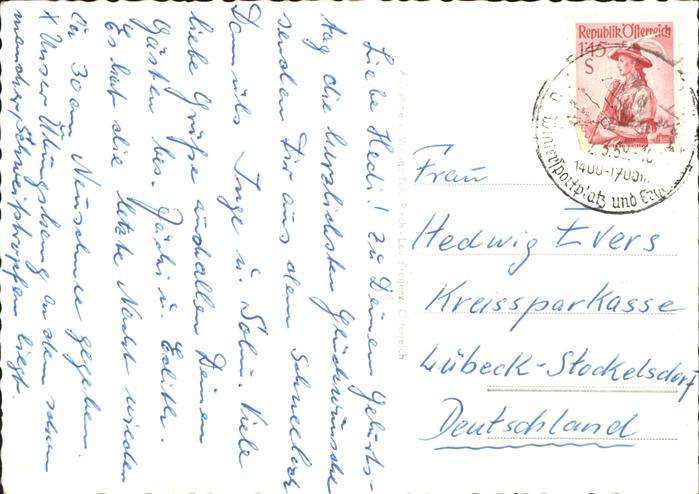 Liebe Hedi! Zu Deinem Geburts-
tag die herzlichsten Glückwünsche
senden Dir aus dem Schneeloch
Damüls Inge u. Sohn. Viele
liebe Grüße auch allen Deinen
Gästen bes. Gachi u. Edith.
Es hat die letzte Nacht wieder
ca 30 cm Neuschnee gegeben.
X Unser Übungshang an dem schon
mancher Schweißtropfen liegt.
Republik Österreich
1'45
S
1400-1700
Wintersportplatz und
Frau
Hedwig Evers
Kreissparkasse
Lübeck-Stockelsdorf
Deutschland